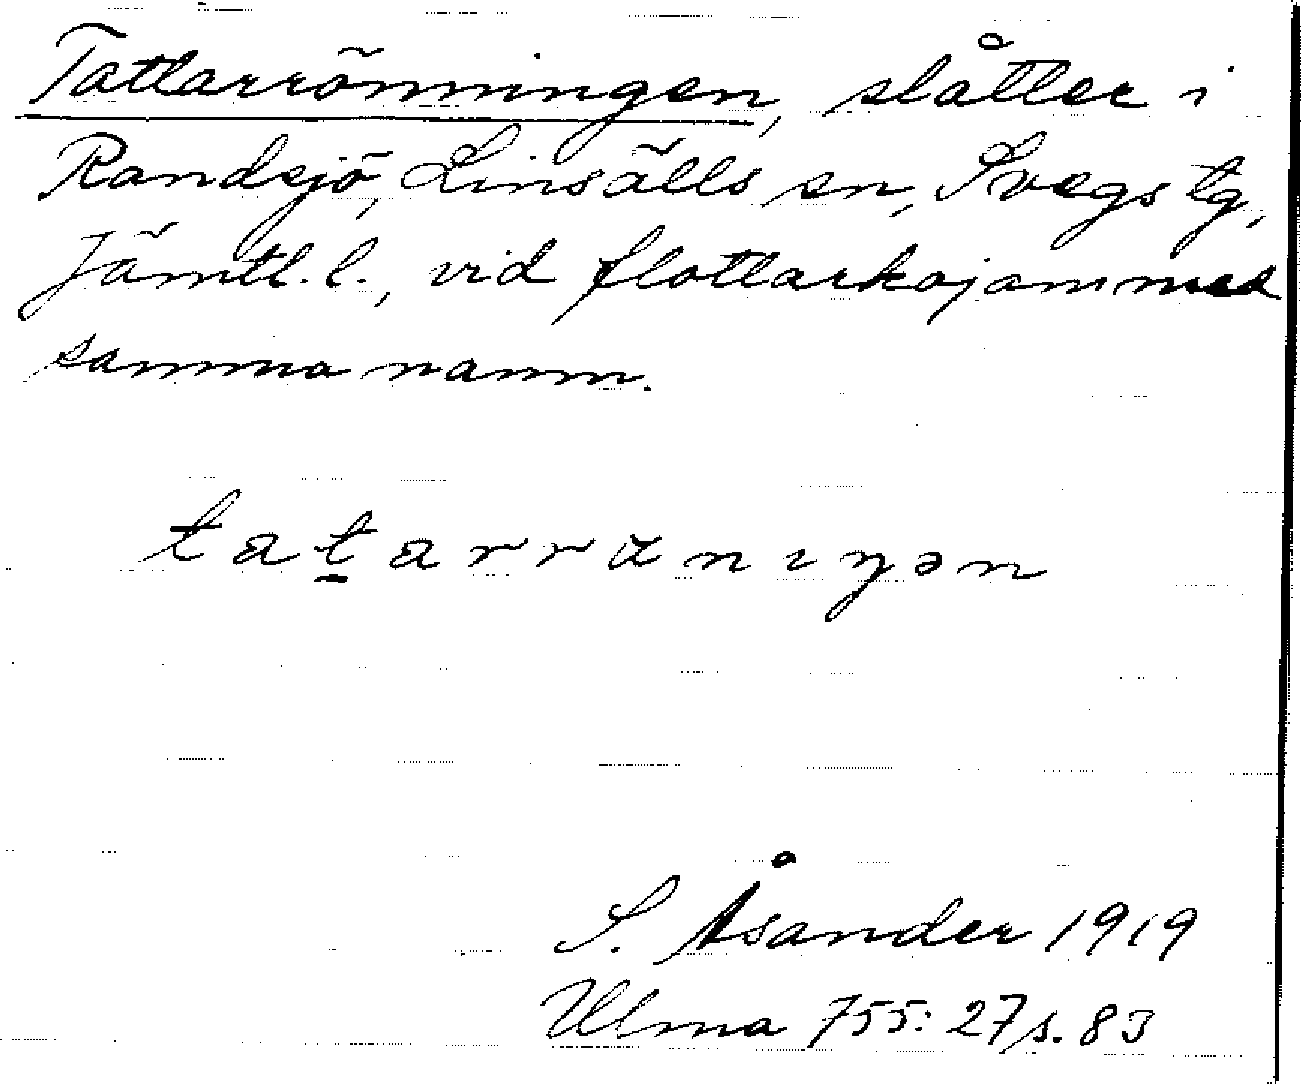 Tattarrönningen, slåtter i
Randsjö, Linsälls sn, Svegs tg,
Jämtl. l., vid flottarkojan med
samma namn.
tat̠arränıŋən
S. Åsander 1919
Ulma 755: 27 s. 83